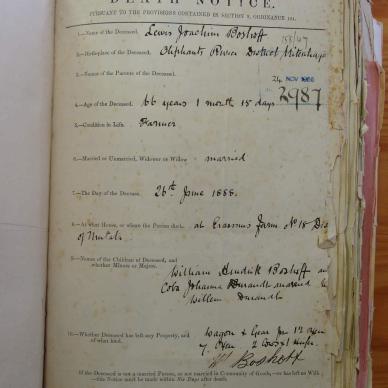 DEATH NOTICE.
PURSUANT TO THE PROVISIONS CONTAINED IN SECTION 9, ORDINANCE 104.
1.—Name of the Deceased. Lewis Joachim Boshoff
2.—Birthplace of the Deceased. Oliphants River District Uitenhage
3.—Names of the Parents of the Deceased.
24 NOV
2987
4.—Age of the Deceased. 66 years 1 month 15 days
5.—Condition in Life. Farmer
6.—Married or Unmarried, Widower or Widow married
7.—The Day of the Decease. 26th June 1888.
8.—At what House, or where the Person died. at Erasmus Farm No 18
of
9.—Names of the Children of Deceased, and
whether Minors or Majors.
William Hendrik Boshoff and
Johanna Durandt married to
Willem Durandt
10.—Whether Deceased has left any Property, and
of what kind.
Wagon & Gear for 12 oxen
7 Oxen 2 Cows
Boshoff
If the Deceased is not a married Person, or not married in Community of Goods,—or has left no Will
—this Notice must be made within Six Days after death.